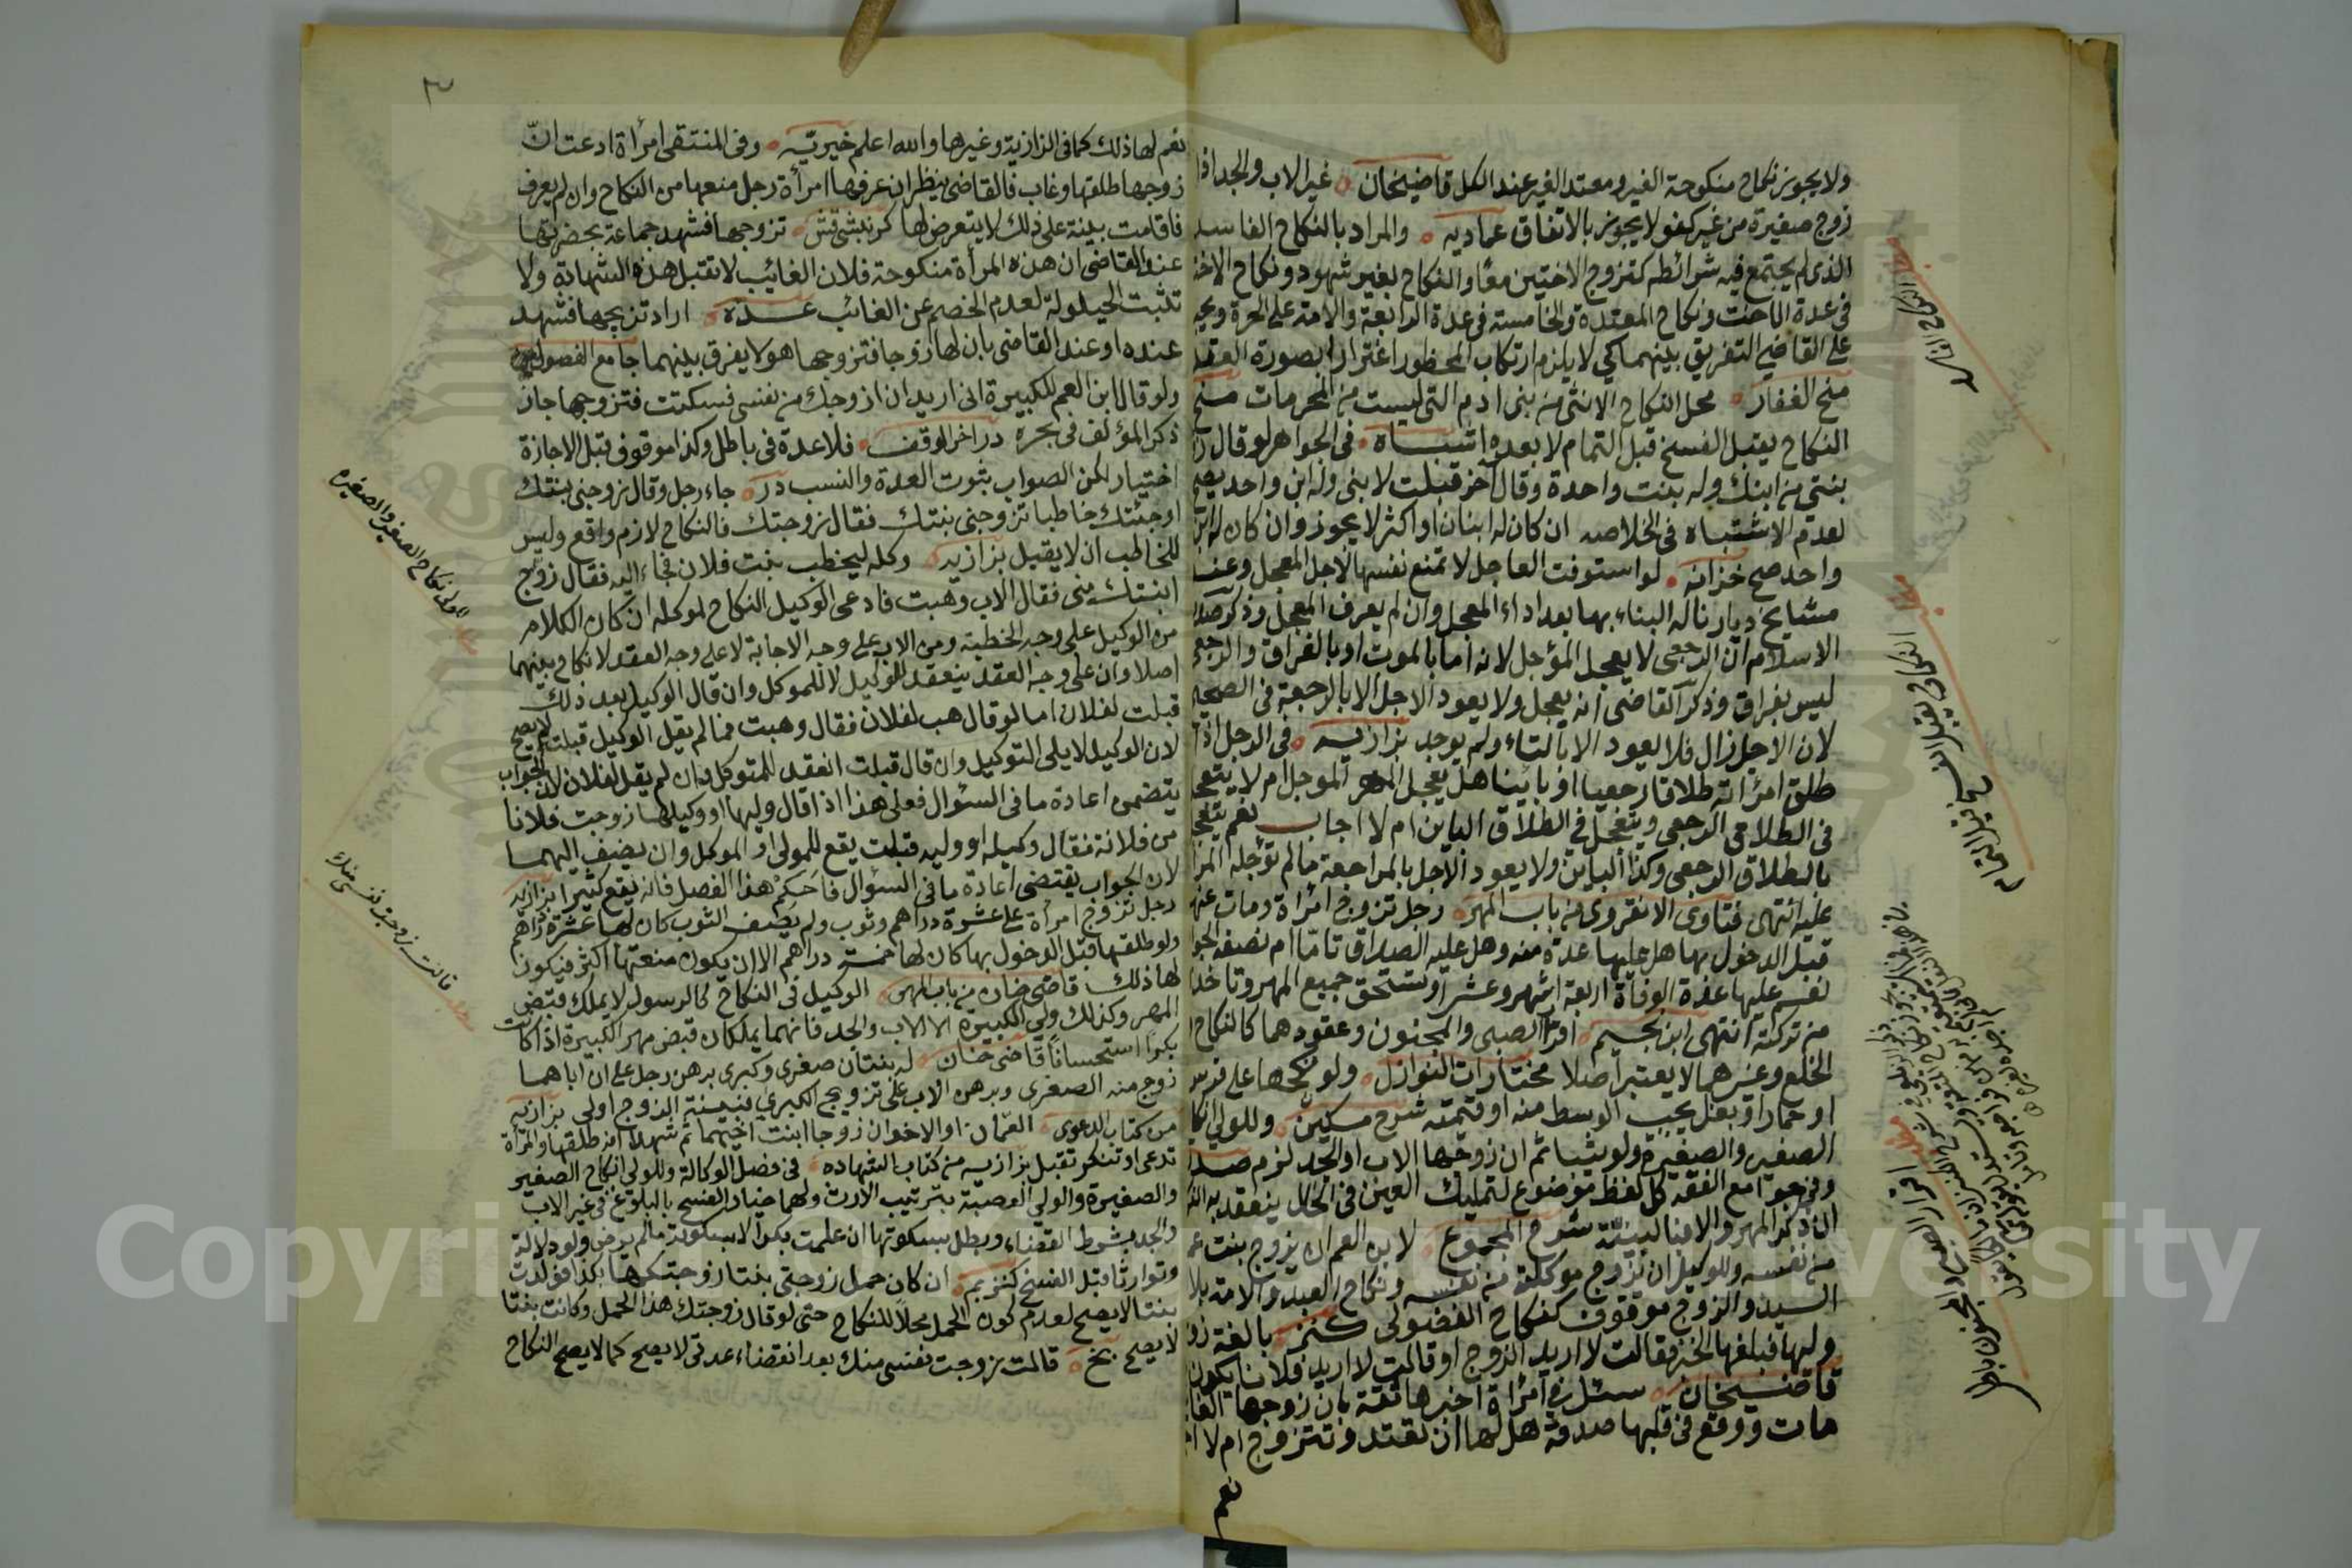 ولا يجوز نكاح منكوحة الغير ومعتد الغير عند الكل قاضيخان غير الاب والجد اذا
زوج صغيرة من غير كفو لا يجوز بالاتفاق عماديه والمراد بالنكاح الفاسد
الذى لم يجتمع فيه شرائطه كتزوج الاختين معا والنكاح بغير شهود ونكاح الاخت
فى عدة الاخت ونكاح المعتدة والخامسة فى عدة الرابعة والامة على الحرة ويجب
على القاضي التفريق بينهما كي لا يلزم ارتكاب المحظور اغترارا بصورة العقد
منح الغفار محل النكاح الانثى من بنى ادم التى ليست من المحرمات منح
النكاح يقبل الفسخ قبل التمام لا بعده اشباه فى الجواهر لو قال
بنتى من ابنك وله بنت واحدة وقال آخر قبلت لابنى وله ابن واحد يصح
لعدم الاشتباه فى الخلاصه ان كان له ابنان او اكثر لا يجوز وان كان له ابن
واحد صح خزانه لو استوفت العاجل لا تمنع نفسها لاجل المعجل وعند
مشايخ ديارنا له البناء بها بعد اداء المعجل وان لم يعرف المعجل وذكر صدر
الاسلام ان الرجعى لا يعجل المؤجل لانه اما بالموت او بالفراق والرجعى
ليس بفراق وذكر القاضى انه يعجل ولا يعود الاجل الا بالرجعة فى الصحيح
لان الاجل زال فلا يعود الا بالتاء ولم يوجد بزازيه فى الرجل اذا
طلق امرأته طلاقا رجعيا او بائنا هل يعجل المهر الموجل ام لا يتعجل
فى الطلاق الرجعى ويتعجل فى الطلاق الباين ام لا اجاب نعم يتعجل
بالطلاق الرجعى وكذا الباين ولا يعود الاجل بالمراجعة ما لم تؤجله المرأة
عليه انتهى فتاوى الانقروى من باب المهر رجل تزوج امرأة ومات عنها
قبل الدخول بها هل عليها عدة منه وهل عليه الصداق تاما ام نصفه الجواب
نعم عليها عدة الوفاة اربعة اشهر وعشرا وتستحق جميع المهر وتاخذه
من تركته انتهى ابن نجيم اقرار الصبى والمجنون وعقودهما كالنكاح
الخلع وغيرهما لا يعتبر اصلا مختارات النوازل ولو نكحها على فرس
او حمار او بغل يجب الوسط منه او قيمته شرح مسكين وللولى انكاح
الصغير والصغيرة ولو ثيبا ثم ان زوجها الاب او الجد لزم صدر
وفى جوامع الفقه كل لفظ موضوع لتمليك العين فى الحال ينعقد به النكاح
ان ذكر المهر والا فبالنية شرح المجموع لابن العم ان يزوج بنت عمه
من نفسه وللوكيل ان يزوج موكلته من نفسه ونكاح العبد والامة بلا
السيد والزوج موقوف كنكاح الفضولى كنز بالغة زوجها
وليها فبلغها الخبر فقالت لا اريد الزوج او قالت لا اريد فلانا يكون
قاضيخان سئل فى امرأة اخبرها ثقة بان زوجها الغائب
مات ووقع فى قلبها صدقه هل لها ان تعتد وتتزوج ام لا
نعم
النكاح الفاسد
النكاح يقبل الفسخ قبل التمام
اقرار الصبى والمجنون باطل
٣
نعم لها ذلك كما فى البزازية وغيرها والله اعلم خيريه وفى المنتقى امرأة ادعت ان
زوجها طلقها وغاب فالقاضى ينظر ان عرفها امرأة رجل منعها من النكاح وان لم يعرف
فاقامت بينة على ذلك لا يتعرض لها تزوجها فشهد جماعة بحضرتها
عند القاضى ان هذه المرأة منكوحة فلان الغائب لا تقبل هذه الشهادة ولا
تثبت الحيلولة لعدم الخصم عن الغائب عدة اراد تزويجها فشهد
عنده او عند القاضى بان لها زوجا فتزوجها هو لا يفرق بينهما جامع الفصولين
ولو قال ابن العم للكبيرة انى اريد ان ازوجك من نفسى فسكتت فتزوجها جاز
ذكر المؤلف فى بحره در اخر الوقف فلا عدة فى باطل وكذا موقوف قبل الاجازة
اختيار لكن الصواب ثبوت العدة والنسب درر جاء رجل وقال زوجنى بنتك
او جئتك خاطبا تزوجنى بنتك فقال زوجتك فالنكاح لازم واقع وليس
للخاطب ان لا يقبل بزازيه وكله ليخطب بنت فلان فجاء اليه فقال زوج
ابنتك منى فقال الاب وهبت فادعى الوكيل النكاح لموكله ان كان الكلام
من الوكيل على وجه الخطبة ومن الاب على وجه الاجابة لا على وجه العقد لا نكاح بينهما
اصلا وان على وجه العقد ينعقد للوكيل لا للموكل وان قال الوكيل بعد ذلك
قبلت لفلان اما لو قال هب لفلان فقال وهبت فما لم يقل الوكيل قبلت لا يصح
لان الوكيل لا يلى التوكيل وان قال قبلت انعقد للموكل وان لم يقل لفلان لان الجواب
يتضمن اعادة ما فى السئوال فعلى هذا اذا قال وليها او وكيلها زوجت فلانا
من فلانة فقال وكيله او وليه قبلت يقع للمولى او الموكل وان لم يضف اليهما
لان الجواب يقتضى اعادة ما فى السئوال فاحكم هذا الفصل فانه يقع كثيرا بزازيه
رجل تزوج امرأة على عشرة دراهم وثوب ولم يصف الثوب كان لها عشرة دراهم
ولو طلقها قبل الدخول بها كان لها خمسة دراهم الا ان يكون متعتها اكثر فيكون
لها ذلك قاضى خان من باب المهر الوكيل فى النكاح كالرسول لا يملك قبض
المهر وكذلك ولى الكبيرة الا الاب والجد فانهما يملكان قبض مهر الكبيرة اذا كانت
بكرا استحسانا قاضى خان له بنتان صغرى وكبرى برهن رجل على ان اباهما
زوج منه الصغرى وبرهن الاب على تزويج الكبرى فبينة الزوج اولى بزازيه
من كتاب الدعوى العمان او الاخوان زوجا ابنت اخيهما ثم شهدا انه طلقها والمرأة
تدعى او تنكر تقبل بزازيه من كتاب الشهاده فى فصل الوكالة وللولى انكاح الصغير
والصغيرة والولى العصبة بترتيب الارث ولهما خيار الفسخ بالبلوغ فى غير الاب
والجد بشرط القضاء وبطل بسكوتها ان علمت بكرا لا بسكوته ما لم يرض ولو دلالة
وتوارثا قبل الفسخ كنز ان كان حمل زوجتى بنتا زوجتكها بكذا فولدت
بنتا لا يصح لعدم كون الحمل محلا للنكاح حتى لو قال زوجتك هذا الحمل وكانت بنتا
لا يصح قالت زوجت نفسى منك بعد انقضاء عدتى لا يصح كما لا يصح النكاح
للولى نكاح الصغير والصغيره
قالت زوجت نفسى منك